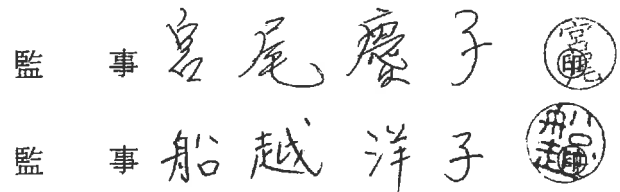 監 事 宮 尾 慶 子 宮尾 印
監 事 船 越 洋 子 船越 印